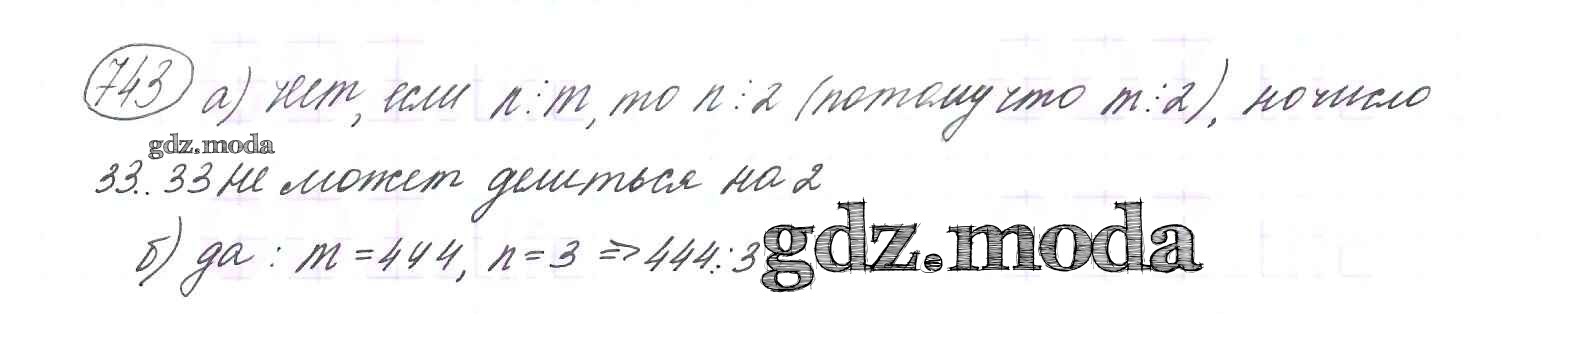 743 а) нет, если n⋮m, то n⋮2 (потому что m⋮2), но число
gdz.moda
33..33 не может делиться на 2
б) да : m = 444, n = 3 => 444⋮3
gdz.moda